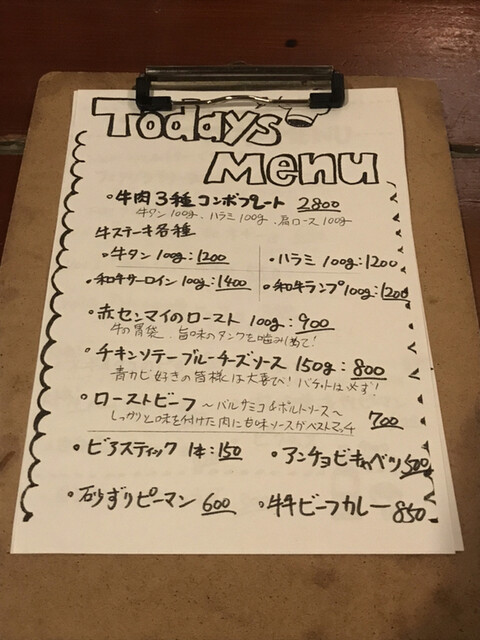 Todays
Menu
・牛肉3種コンボプレート 2800
牛タン100g、ハラミ100g、肩ロース100g
牛ステーキ各種
・牛タン 100g:1200 ・ハラミ 100g:1200
・和牛サーロイン 100g:1400 ・和牛ランプ100g:1200
・赤センマイのロースト 100g:900
牛の胃袋、旨味のタンクを噛み締めて!
・チキンソテーブルーチーズソース 150g:800
青カビ好きの皆様は大喜び!バゲットは必ず!
・ローストビーフ 〜バルサミコ&ポルトソース〜 700
しっかりと味を付けた肉に甘味ソースがベストマッチ
・ビアスティック 1本:150 ・アンチョビキャベツ 500
・砂ずりピーマン 600 ・牛牛ビーフカレー 850